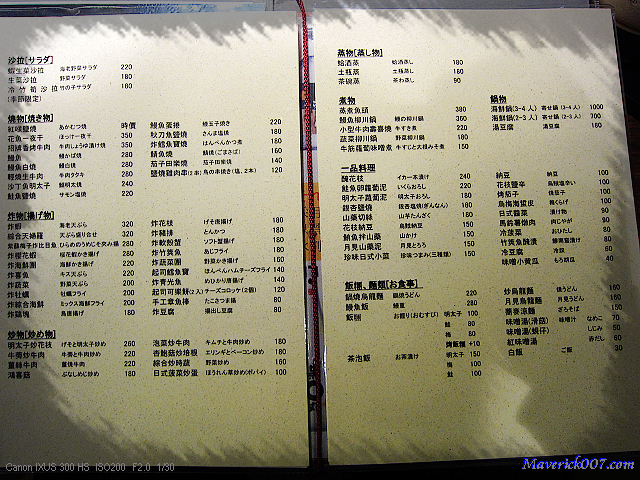 沙拉[サラダ]
蝦生菜沙拉 海老野菜サラダ 220
生菜沙拉 野菜サラダ 180
冷竹筍沙拉 竹の子サラダ 180
(季節限定)
燒物[焼き物]
紅喉鹽燒 あかむつ焼 時價
花魚一夜干 ほっけ一夜干 350
招牌香烤牛肉 350
鰻魚 鰻かば焼 280
鰻魚白燒 鰻白焼 280
輕燒生牛肉 牛肉タタキ 280
沙丁魚明太子 鰯明太焼 240
鮭魚鹽燒 サモン塩焼 220
鰻魚蛋捲 鰻玉子焼き 220
秋刀魚鹽燒 さんま塩焼 180
炸鱈魚寶燒 はんぺんかつ煮 180
鯖魚燒 鯖焼 180
茄子田樂燒 茄子田楽焼 140
鹽燒雞肉串(2串) 鳥の串焼き(塩、2本) 120
炸物[揚げ物]
炸蝦 海老天ぷら 320
綜合天婦羅 天ぷら盛り合せ 320
炸櫻花蝦 桜花蝦かき揚げ 280
炸海鮮團 海鮮かき揚げ 220
炸喜魚 キス天ぷら 220
炸蔬菜 野菜天ぷら 200
炸牡蠣 牡蠣フライ 200
炸綜合海鮮 ミックス海鮮フライ 200
炸雞塊 鳥唐揚げ 180
炸花枝 げそ唐揚げ 180
炸豬排 とんかつ 180
炸軟殼蟹 ソフト蟹揚げ 180
炸竹筴魚 あじフライ 180
炸蔬菜團 野菜かき揚げ 150
起司鱈魚寶 はんぺんハムチーズフライ 140
炸青光魚 めひかり唐揚げ 140
起司可樂餅(2入) チーズコロッケ(2個) 120
手工章魚棒 たこさつま揚 80
炸豆腐 揚出し豆腐 80
炒物[炒め物]
明太子炒花枝 げそと明太子炒め 260
牛蒡炒牛肉 牛蒡と牛肉炒め 220
薑絲牛肉 薑焼牛肉 220
鴻喜菇 ぶなしめじ炒め 180
泡菜炒牛肉 キムチと牛肉炒め 180
杏鮑菇炒培根 エリンギとベーコン炒め 180
綜合炒時蔬 野菜炒め 160
日式菠菜炒蛋 ほうれん草炒め(ポパイ) 100
蒸物[蒸し物]
蛤酒蒸 蛤酒蒸 180
土瓶蒸 土瓶蒸し 180
茶碗蒸 茶わ蒸し 90
煮物
蒸煮魚頭 380
鰻魚柳川鍋 鰻の柳川鍋 360
小型牛肉壽喜燒 牛すき煮 220
蔬菜柳川鍋 野菜柳川鍋 180
牛筋蘿蔔味噌煮 牛すじと大根みそ煮 150
鍋物
海鮮鍋(3-4 人) 寄せ鍋 (3-4 人) 1000
海鮮鍋(2-3 人) 寄せ鍋 (2-3 人) 700
湯豆腐 湯豆腐 180
一品料理
醃花枝 イカ一本漬け 240
鮭魚卵蘿蔔泥 いくらおろし 220
明太子蘿蔔泥 明太子おろし 180
銀杏鹽燒 銀杏塩焼(ぎんなん) 180
山藥切絲 山芋たんざく 180
花枝納豆 烏賊納豆 150
鮪魚拌山藥 山かけ 150
月見山藥泥 月見とろろ 150
珍味日式小菜 珍味つまみ(三種類) 150
納豆 納豆 100
花枝鹽辛 烏賊塩辛い 100
烤茄子 焼茄子 100
烏梅海蜇皮 梅くらげ 100
日式醬菜 漬け物 90
馬鈴薯燉肉 肉じゃが 90
冷菠菜 おひたし 80
竹筴魚醃漬 80
冷豆腐 冷奴 60
味噌小黃瓜 もろ胡瓜 40
飯糰、麵類[お食事]
鍋燒烏龍麵 鍋焼うどん 220
鰻魚飯 鰻重 280
飯糰 お握り(おむすび) 明太子 100
鮭 80
梅 80
烤飯糰 +10
茶泡飯 お茶漬け 明太子 150
梅 100
鮭 100
炒烏龍麵 焼うどん 160
月見烏龍麵 月見うどん 160
蕎麥涼麵 ざるそば 150
味噌湯(滑菇) 味噌汁 なめこ 70
味噌湯(蜆仔) しじみ 50
紅味噌湯 赤だし 60
白飯 ご飯 30
Canon IXUS 300 HS ISO200 F2.0 1/30
Maverick007.com